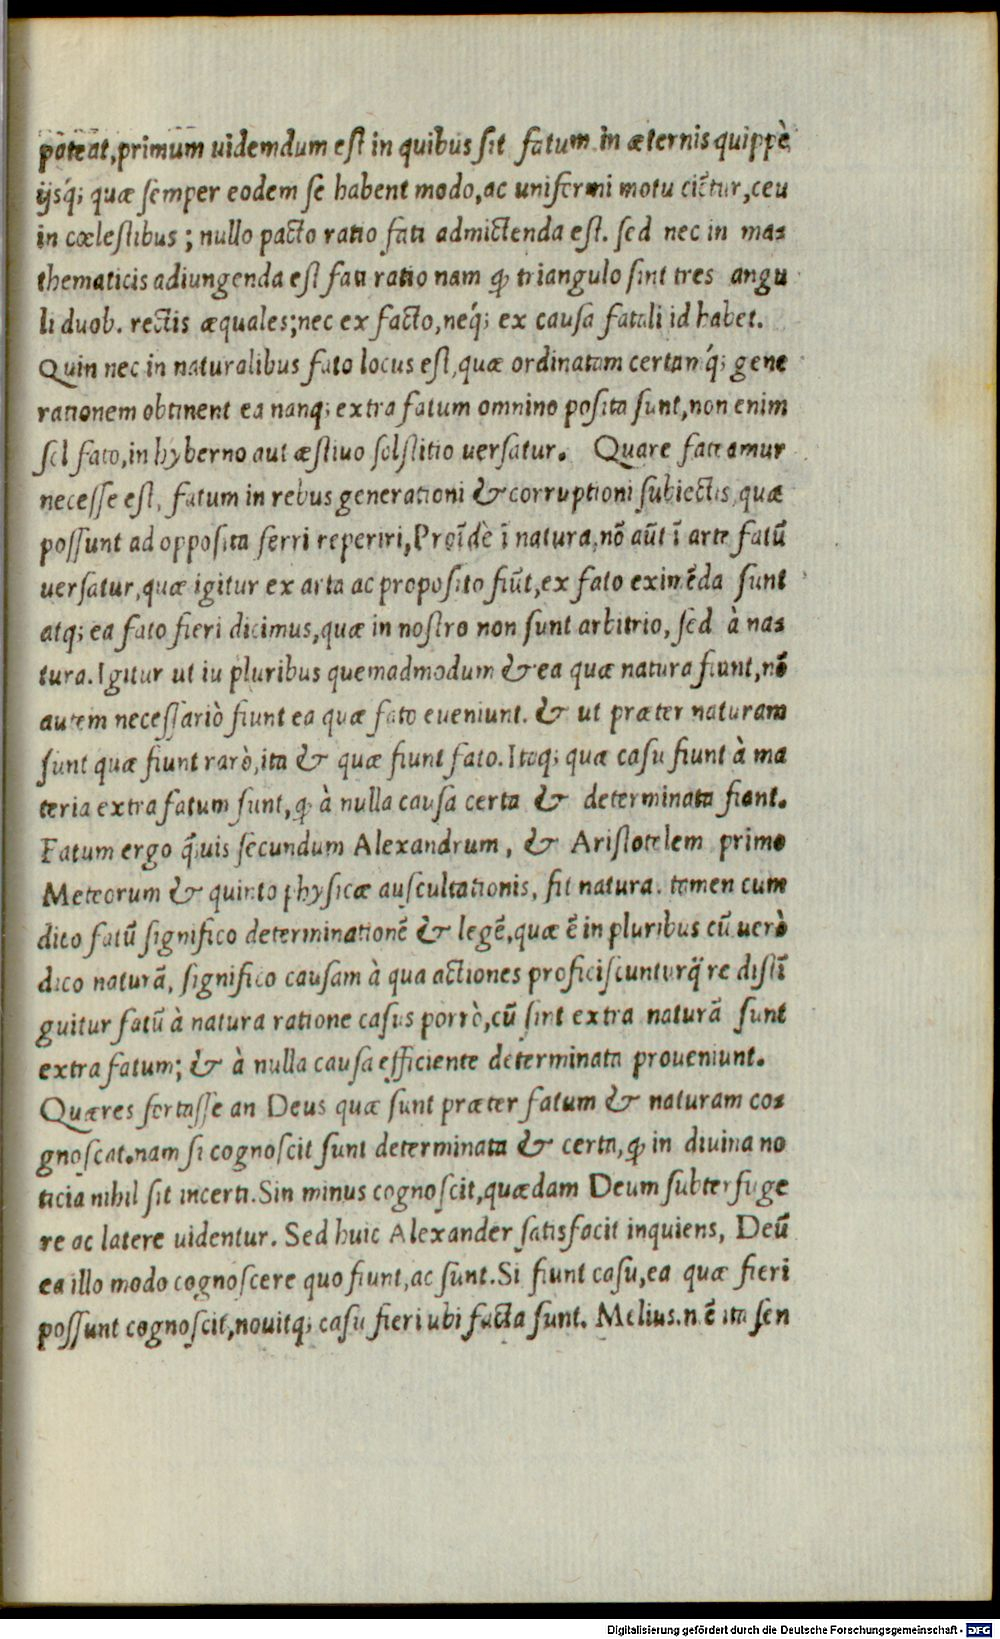 poteat,primum uidemdum eſt in quibus ſit fatum in æternis quippè
ijsq́; quæ ſemper eodem ſe habent modo,ac uniformi motu ciẽtur,ceu
in cœleſtibus ; nullo pacto ratio fati admictenda eſt. ſed nec in ma⸗
thematicis adiungenda eſt fati ratio nam ꝙ triangulo ſint tres angu
li duob. rectis æquales;nec ex facto,neq́; ex cauſa fatali id habet.
Quin nec in naturalibus fato locus eſt,quæ ordinatam certamq́; gene
rationem obtinent ea nanq; extra fatum omnino poſita ſunt,non enim
ſol fato,in hyberno aut æſtiuo ſolſtitio uerſatur. Quare fateamur
neceſſe eſt, fatum in rebus generationi & corruptioni ſubiectis,quæ
poſſunt ad oppoſita ferri reperiri,Proĩdè ĩ natura,nõ aũt ĩ arte fatũ
uerſatur,quæ igitur ex arta ac propoſito fiũt,ex fato eximẽda ſunt
atq; ea fato fieri dicimus,quæ in noſtro non ſunt arbitrio, ſed à na⸗
tura. Igitur ut iu pluribus quemadmodum & ea quæ natura fiunt,nõ
autem neceſſariò fiunt ea quæ fato eueniunt. & ut præter naturam
ſunt quæ fiunt rarò,ita & quæ fiunt fato. Itaq; quæ caſu fiunt à ma
teria extra fatum ſunt,ꝙ à nulla cauſa certa & determinata fiant.
Fatum ergo q̃uis ſecundum Alexandrum, & Ariſtotelem primo
Meteorum & quinto phyſicæ auſcultationis, ſit natura. tamen cum
dico fatũ ſignifico determinationẽ & legẽ,quæ ẽ in pluribus cũ uerò
dico naturã, ſignifico cauſam à qua actiones proficiſcunturq̃re diſtĩ
guitur fatũ à natura ratione caſus porrò,cũ ſint extra naturã ſunt
extra fatum; & à nulla cauſa efficiente determinata proueniunt.
Quæres fortaſſe an Deus quæ ſunt præter fatum & naturam co⸗
gnoſcat.nam ſi cognoſcit ſunt determinata & certa,ꝙ in diuina no
ticia nihil ſit incerti.Sin minus cognoſcit,quædam Deum ſubterfuge
re ac latere uidentur. Sed huic Alexander ſatisfacit inquiens, Deũ
ea illo modo cognoſcere quo fiunt,ac ſunt.Si fiunt caſu,ea quæ fieri
poſſunt cognoſcit,nouitq; caſu fieri ubi facta ſunt. Melius.n.ẽ ita ſen
Digitalisierung gefördert durch die Deutsche Forschungsgemeinschaft - DFG